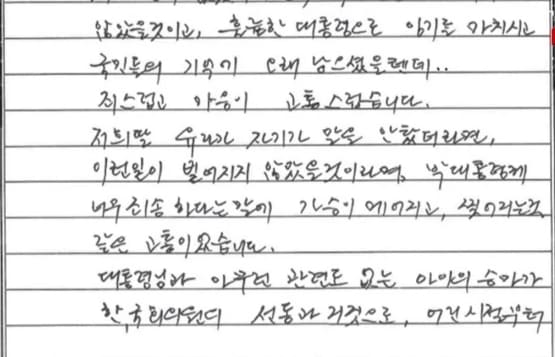 않았을것이고, 훌륭한 대통령으로 임기를 마치시고
국민들의 기억에 오래 남으셨을텐데..
죄스럽고 마음이 고통스럽습니다.
저희딸 유라가 자기가 말을 안탔더라면,
이런일이 벌어지지 않았을것이라며, 박대통령께
너무 죄송하다는 말에 가슴이 메어지고, 찢어지는것
같은 고통이 있습니다.
대통령님과 아무런 관련도 없는 아이의 승마가
한 국회의원의 선동과 거짓으로, 어린시절부터